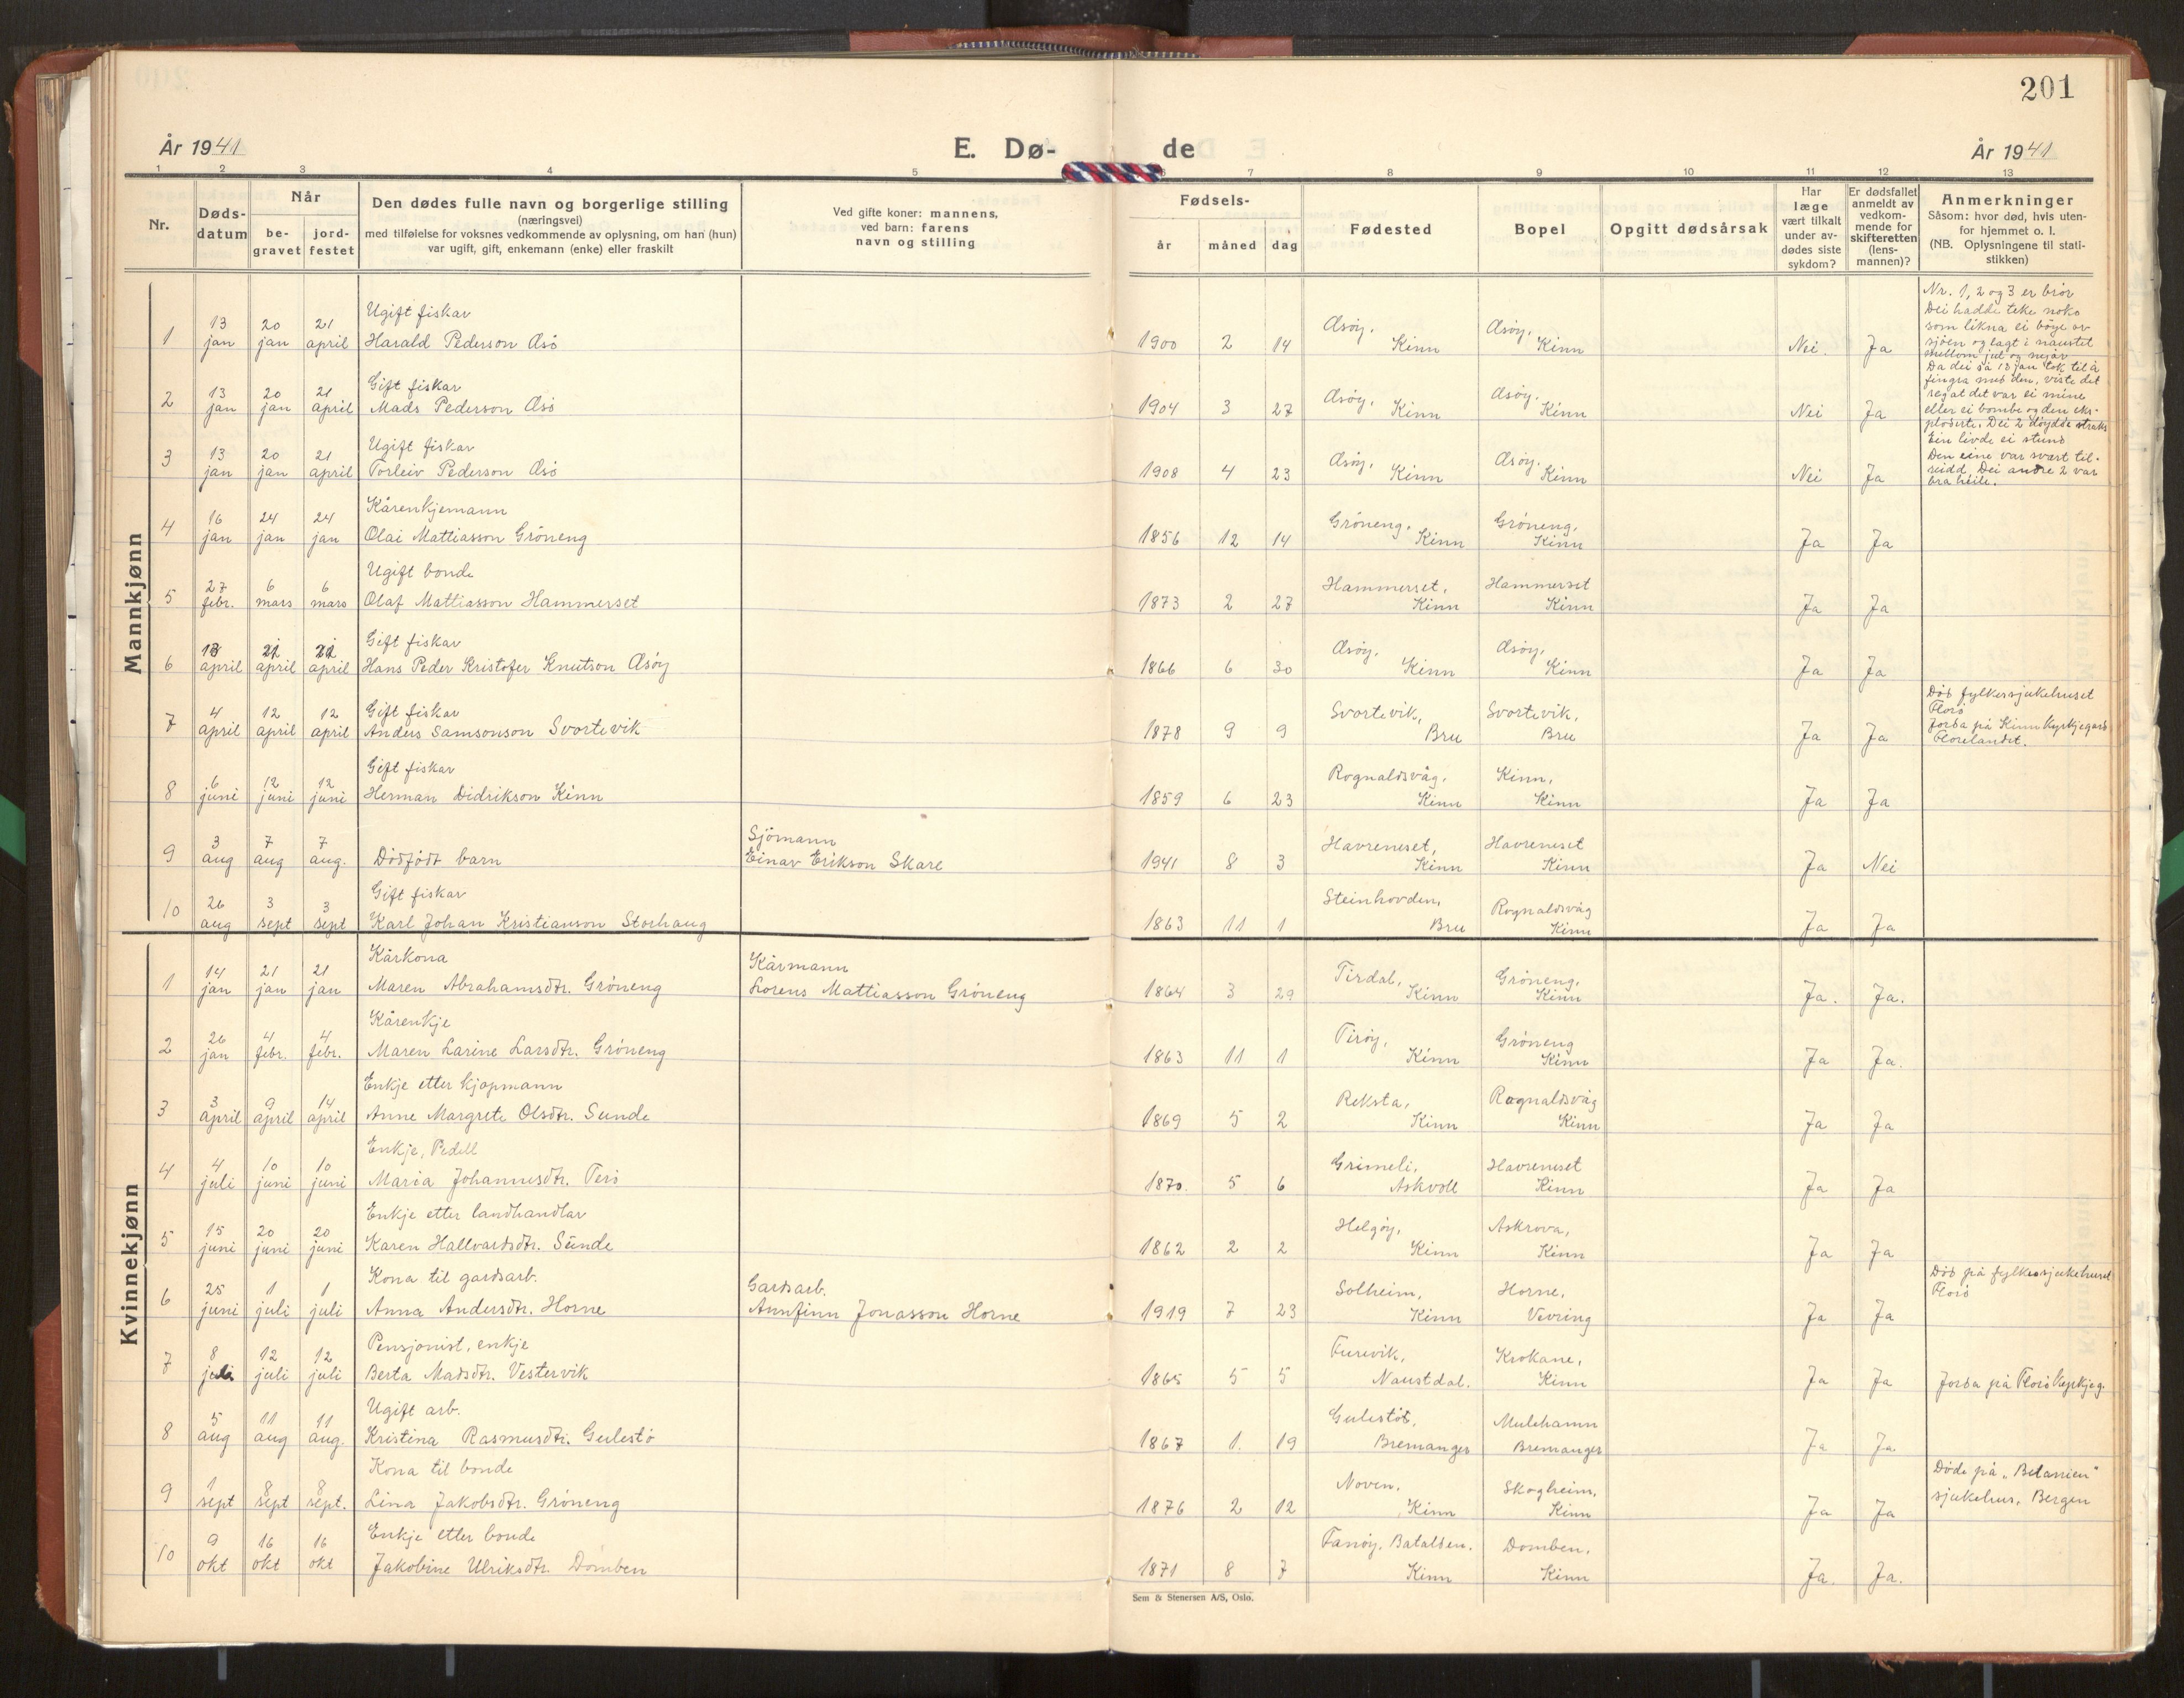 201
År 1941
E. Dø-
de
År 1941
1 2 3 4 5 6 7 8 9 10 11 12 13
Nr.
Døds-
datum
Når
be-
gravet
jord-
festet
Den dødes fulle navn og borgerlige stilling
(næringsvei)
med tilføielse for voksnes vedkommende av oplysning, om han (hun)
var ugift, gift, enkemann (enke) eller fraskilt
Ved gifte koner: mannens,
ved barn: farens
navn og stilling
Fødsels-
år
måned
dag
Fødested
Bopel
Opgitt dødsårsak
Har
læge
vært tilkalt
under av-
dødes siste
sykdom?
Er dødsfallet
anmeldt av
vedkom-
mende for
skifteretten
(lens-
mannen)?
Anmerkninger
Såsom: hvor død, hvis uten-
for hjemmet o. l.
(NB. Oplysningene til stati-
stikken)
Mannkjønn
Ugift fiskar
1 13 jan 20 jan 21 april Harald Pederson Åsö 1900 2 14 Åsöy, Kinn Åsöy, Kinn Nei. Ja
Nr. 1, 2 og 3 er brör
Dei hadde teke noko
som likna ei böye av
sjöen og lagt i naustet
mellom jul og nyjår
Da dei så 13 jan tok til å
fingra med den, viste det
seg at det var ei mine
eller ei bombe og den eks-
ploderte. Dei 2 döydde straks
Ein livde ei stund
Den eine var svært til-
reidd. Dei andre 2 var
bra heile.
Gift fiskar
2 13 jan 20 jan 21 april Mads Pederson Åsö 1904 3 27 Åsöy, Kinn Åsöy, Kinn Nei Ja
Ugift fiskar
3 13 jan 20 jan 21 april Torleiv Pederson Åsö 1908 4 23 Åsöy, Kinn Åsöy, Kinn Nei Ja
Kårenkjemann
4 16 jan 24 jan 24 jan Olai Mattiasson Gröneng 1856 12 14 Gröneng, Kinn Gröneng, Kinn Ja Ja
Ugift bonde
5 27 febr. 6 mars 6 mars Olaf Mattiasson Hammerset 1873 2 27 Hammerset, Kinn Hammerset Kinn Ja Ja
Gift fiskar
6 april 21 april 21 april Hans Peder Kristofer Knutson Åsöy 1866 6 30 Åsöy, Kinn Åsöy, Kinn Ja Ja
Gift fiskar
7 4 april 12 april 12 april Anders Samsonson Svortevik 1878 9 9 Svortevik, Bru Svortevik, Bru Ja Ja
Död fylkessjukehuset
Florö
Jorda på Kinn kyrkjegard
Florelandet.
Gift fiskar
8 6 juni 12 juni 12 juni Herman Didrikson Kinn 1859 6 23 Rognaldsvåg, Kinn Kinn, Kinn Ja Ja
Sjömann
9 3 aug 7 aug 7 aug. Dödfödt barn Einar Erikson Skare 1941 8 3 Havreneset, Kinn Havreneset Kinn Ja Nei
Gift fiskar
10 26 aug 3 sept 3 sept Karl Johan Kristianson Storhaug 1863 11 1 Steinhovden, Bru Rognaldsvåg Kinn Ja Ja
Kvinnekjønn
Kårkona Kårmann
1 14 jan 21 jan 21 jan Maren Abrahamsdtr. Gröneng Lorens Mattiasson Gröneng 1864 3 29 Tirdal, Kinn Gröneng, Kinn Ja. Ja.
Kårenkje
2 26 jan 4 febr. 4 febr. Maren Larine Larsdtr. Gröneng 1863 11 1 Tiröy, Kinn Gröneng Kinn Ja Ja.
Enkje etter kjøpmann
3 3 april 9 april 14 april Anne Margrete Olsdtr. Sunde 1869 5 2 Reksta, Kinn Rognaldsvåg Kinn Ja Ja
Enkje, Pedell
4 4 juli 10 juni 10 juni Maria Johannesdtr. Terö 1870 5 6 Grimeli, Askvoll Havreneset Kinn Ja Ja
Enkje etter landhandlar
5 15 juni 20 juni 20 juni Karen Hallvardsdtr. Sunde 1862 2 2 Helgöy, Kinn Askrova, Kinn Ja Ja
Kona til gardsarb. Gardsarb.
6 25 juni 1 juli 1 juli Anna Andersdtr. Horne Annfinn Jonasson Horne 1919 7 23 Solheim, Kinn Horne, Vevring Ja Ja
Död på fylkessjukehuset
Florö
Pensjonist, enkje
7 8 juli 12 juli 12 juli Berta Madsdtr. Vestervik 1865 5 5 Furevik, Naustdal. Krokane, Kinn Ja Ja Jorda på Florö kyrkjeg.
Ugift arb.
8 5 aug 11 aug 11 aug. Kristina Rasmusdtr. Gulestö 1867 1. 19 Gulestöd, Bremanger Mulehamn Bremanger Ja Ja
Kona til bonde
9 1 sept 8 sept 8 sept. Lina Jakobsdtr. Gröneng 1876 2 12 Noven, Kinn Skogheim, Kinn Ja Ja
Döde på „Betanien"
sjukehus, Bergen
Enkje etter bonde
10 9 okt 16 okt 16 okt Jakobine Ulriksdtr. Domben 1871 8 7 Fanöy, Batalden. Kinn Domben, Kinn Ja. Ja.
Sem & Stenersen A/S, Oslo.